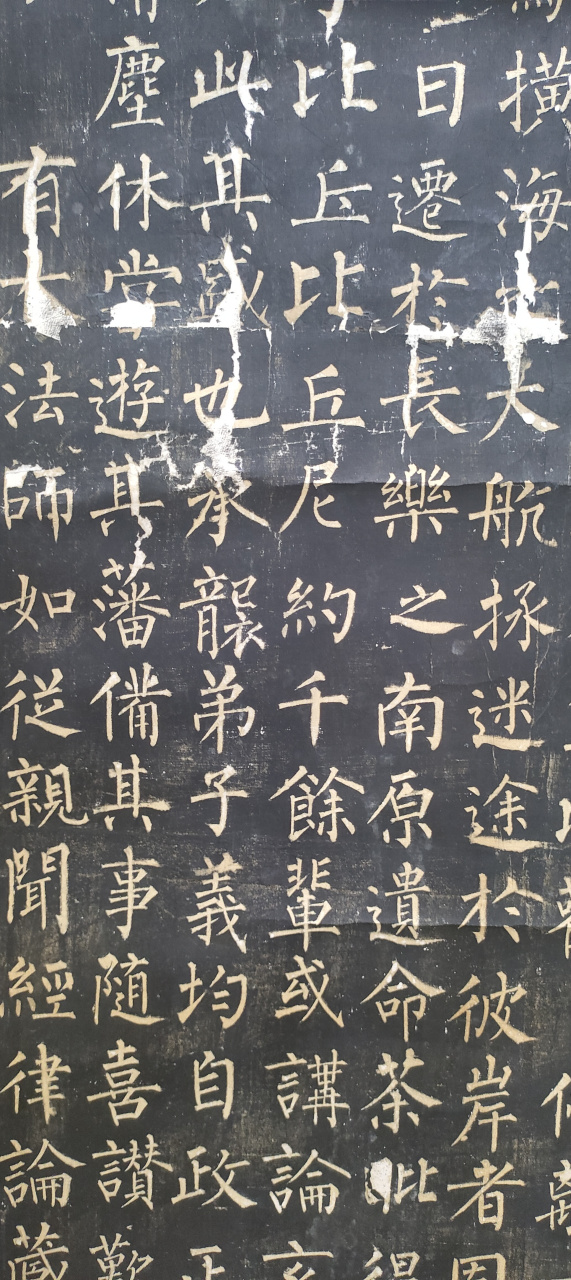 橫海大航拯迷途於彼岸者
日遷於長樂之南原遺命荼毗得
比丘比丘尼約千餘輩或講論玄
此其盛也承襲弟子義均自政正
塵休遊其藩備其事隨喜讚歎
有大法師如從親聞經律論藏